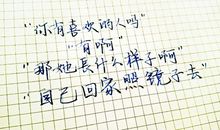 "你有喜欢的人吗"
"有啊"
"那她長什么样子啊"
"自己回家照镜子去"